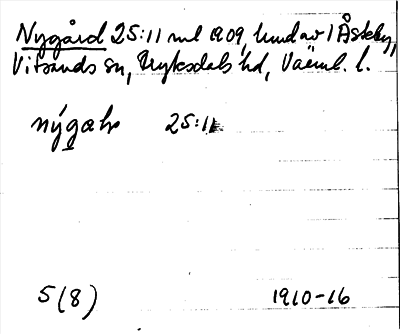 Nygård 25:11 ml 1909, hmd av 1 Åsteby,
Vitsands sn, Fryksdals hd, Värml. l.
25:11
5(8) 1910-16